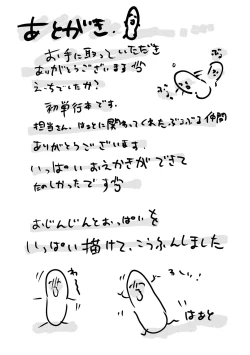 あとがき.
お手に取っていただき
ありがとうございます
えっちでしたか?
初単行本です。
担当さん、はるとに関わってくれたぷるぷる仲間
ありがとうございます
いっぱいおえかきができて
たのしかったです
おじんじんとおっぱいを
いっぱい描けて、こうふんしました
わー
はあと